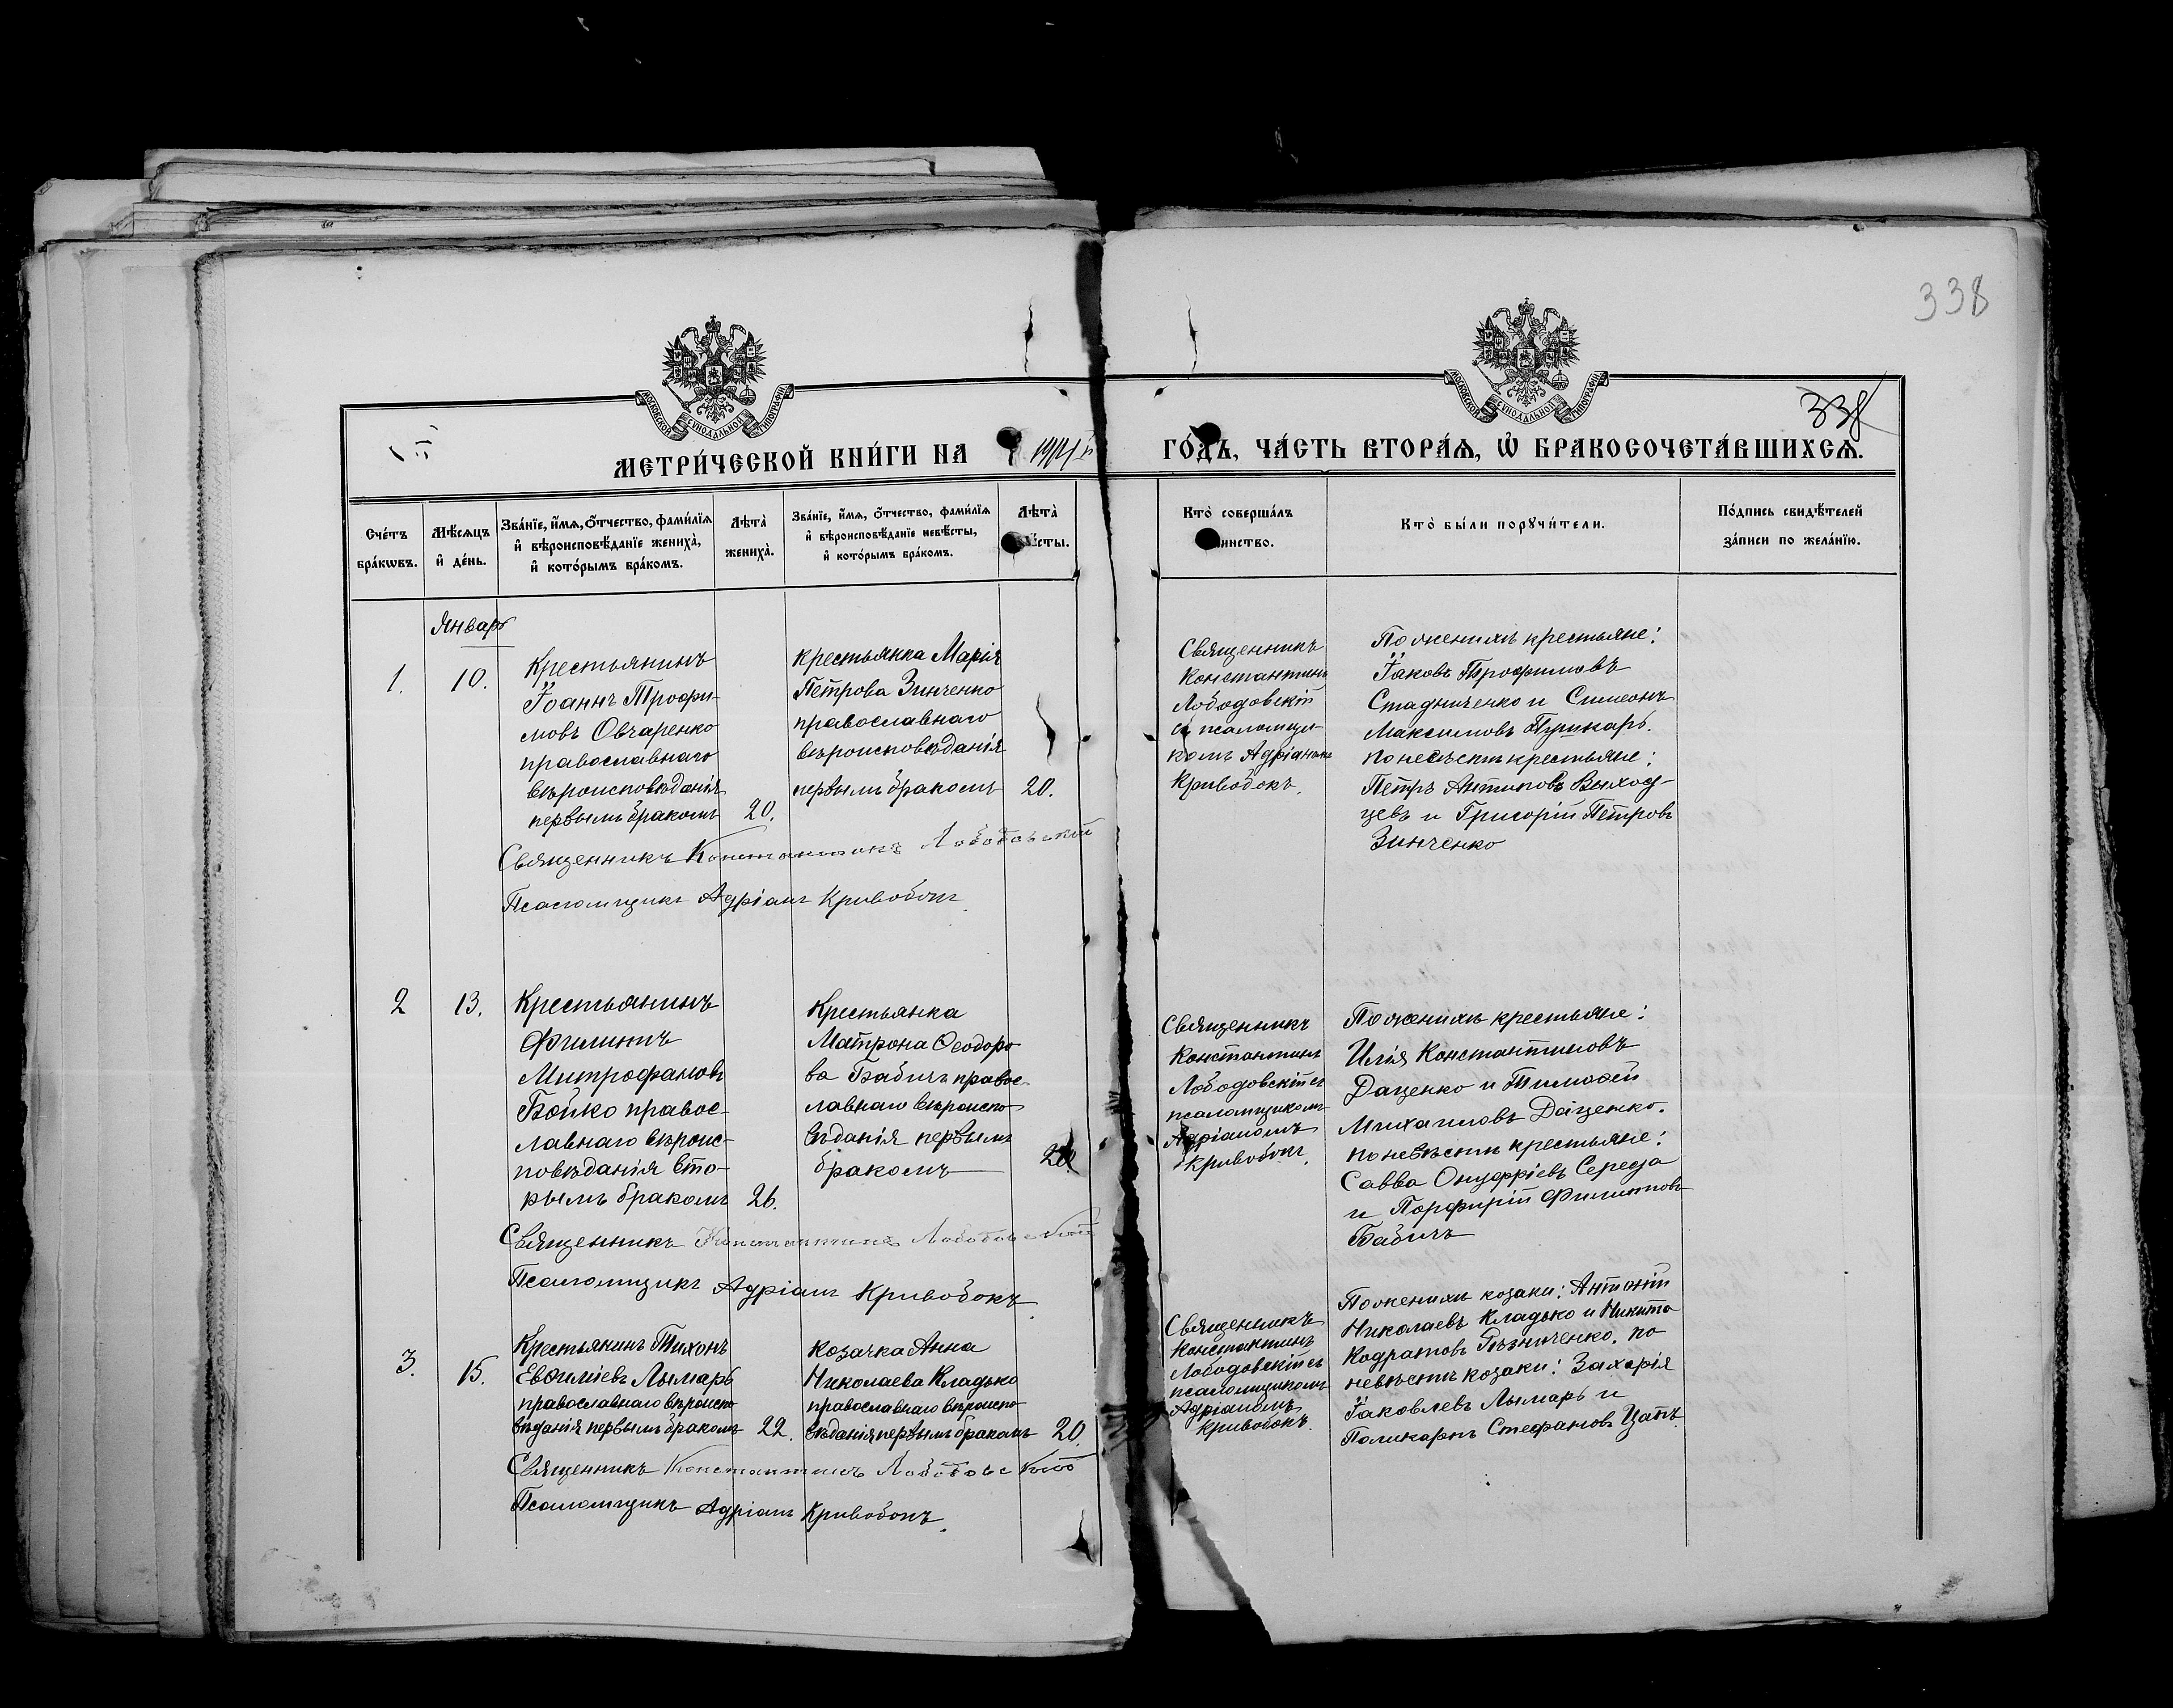 338
338
МОСКОВСКОЙ СУНОДАЛЬНОЙ ТИПОГРАФІИ
МОСКОВСКОЙ СУНОДАЛЬНОЙ ТИПОГРАФІИ
МЕТРИ́ЧЕСКОЙ КНИ́ГИ НА
ГО́ДЪ, ЧА́СТЬ ВТОРА́Ѧ, Ѽ БРАКОСОЧЕТА́ВШИХСѦ.
Сче́тъ бра́кѡвъ.
Мѣ́сѧцъ и҆ де́нь.
Зва́нїе, и҆́мѧ, ѻ҆́тчество, фами́лїѧ
и҆ вѣроисповѣ́данїе жениха̀,
и҆ кото́рымъ бра́комъ.
Лѣ́та̀ жениха̀.
Зва́нїе, и҆́мѧ, ѻ҆́тчество, фами́лїѧ
и҆ вѣроисповѣ́данїе невѣ́сты,
и҆ кото́рымъ бра́комъ.
Лѣ́та̀
Кто̀ соверша́лъ
Кто̀ бы́ли порꙋчи́тели.
По́дпись свидѣ́телей
за́писи по жела́нїю.
Январь
1.
10.
Крестьянинъ
Іоаннъ Трофи-
мовъ Овчаренко
православнаго
вѣроисповѣданія
первымъ бракомъ
20.
крестьянка Марія
Петрова Зинченко
православнаго
вѣроисповѣданія
первымъ бракомъ
20.
Священникъ
Константинъ
Лободовскій
съ псаломщи-
комъ Адріаномъ
Кривобокъ.
По женихѣ крестьяне:
Іаковъ Трофимовъ
Стадниченко и Симеонъ
Максимовъ Пушкарь.
по невѣстѣ крестьяне:
Петръ Антиповъ Выход-
цевъ и Григорій Петровъ
Зинченко
Священникъ Константинъ Лободовскій
Псаломщикъ Адріанъ Кривобокъ
2
13.
Крестьянинъ
Филиппъ
Митрофановъ
Бойко правос-
лавнаго вѣроис-
повѣданія вто-
рымъ бракомъ
26.
Крестьянка
Матрона Ѳеодоро
ва Бабичъ правос-
лавнаго вѣроиспо-
вѣданія первымъ
бракомъ
Священникъ
Константинъ
Лободовскій съ
псаломщикомъ
Адріаномъ
Кривобокъ.
По женихѣ крестьяне:
Илія Константиновъ
Даценко и Тимоѳей
Михаиловъ Даценко.
по невѣстѣ крестьяне:
Савва Онуфріевъ Середа
и Порфирій Филипповъ
Бабичъ
Священникъ Константинъ Лободовскій
Псаломщикъ Адріанъ Кривобокъ
3.
15.
Крестьянинъ Тихонъ
Евѳиміевъ Лымарь
православнаго вѣроиспо
вѣданія первымъ бракомъ
22.
козачка Анна
Николаева Кладько
православнаго вѣроиспо-
вѣданія первымъ бракомъ
20.
Священникъ
Константинъ
Лободовскій съ
псаломщикомъ
Адріаномъ
Кривобокъ.
По женихѣ козаки: Антоній
Николаевъ Кладько и Никита
Кодратовъ Рѣзниченко. по
невѣстѣ козаки: Захарія
Іаковлевъ Лымарь и
Поликарпъ Стефановъ Цапъ
Священникъ Константинъ Лободовскій
Псаломщикъ Адріанъ Кривобокъ.